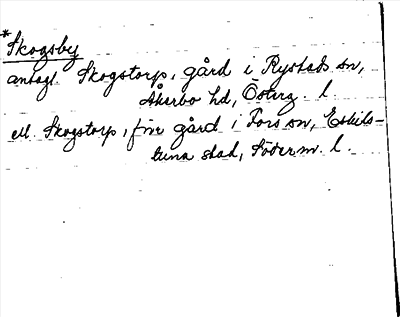 *Skogsby
antagl. Skogstorp, gård i Rystads sn,
Åkerbo hd, Österg. l
ell. Skogstorp, förr gård i Fors sn, Eskils-
tuna stad, Söderm. l.